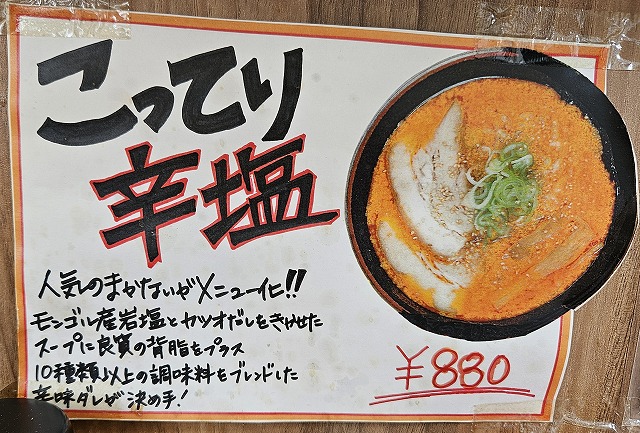 こってり
辛塩
人気のまかないがメニュー化!!
モンゴル産岩塩とカツオだしをきかせた
スープに良質の背脂をプラス
10種類以上の調味料をブレンドした
辛味ダレが決め手!
¥880